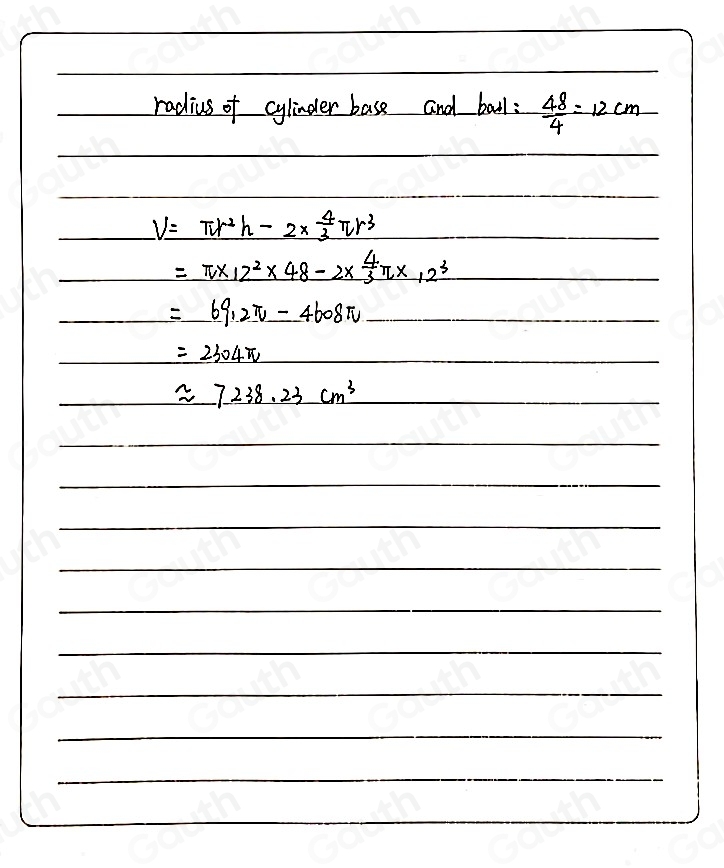 radius of cylinder base and ball: 48/4 = 12 cm
V = πr²h - 2 × 4/3 πr³
= π × 12² × 48 - 2 × 4/3 π × 12³
= 6912π - 4608π
= 2304π
≈ 7238.23 cm³